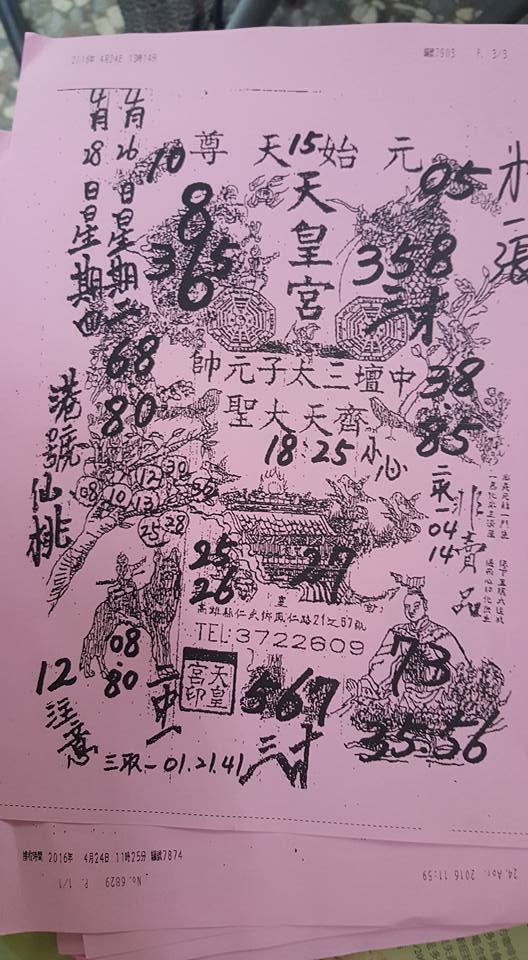 2016年 4月24日 13時14分 編號7903 P. 3/3
4月26日星期二
4月28日星期四
港號仙桃
元始天尊
15
天皇宮
10
8
3 5
6
05
358
38
85
68
80
中壇三太子元帥
齊天大聖
18.25小心
二取一04
14
非賣品
08 10 12 30
13
25 28
25
26
27
高雄縣仁武鄉鳳仁路21之67號
TEL:3722609
天皇宮印
08
80
二中一
12注意
567
73
35.56
三取一01.21.41
接收時間 2016年 4月24日 11時25分 編號7874
No. 6829 P. 1/1
24. Apr. 2016 11:59